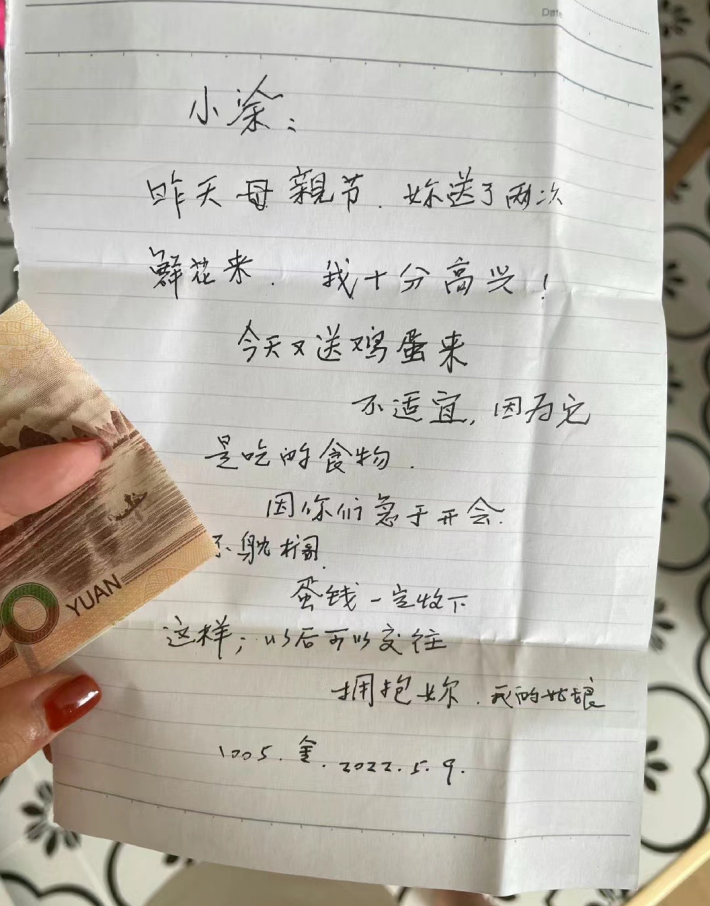 Date
小涂:
昨天母親节.妳送了两次
鲜花来.我十分高兴!
今天又送鸡蛋来
不适宜,因为它
是吃的食物.
因你们急于开会.
不躭搁.
蛋钱一定收下
这样;以后可以交往
拥抱妳.我的姑娘
1005.金.2022.5.9.
20 YUAN